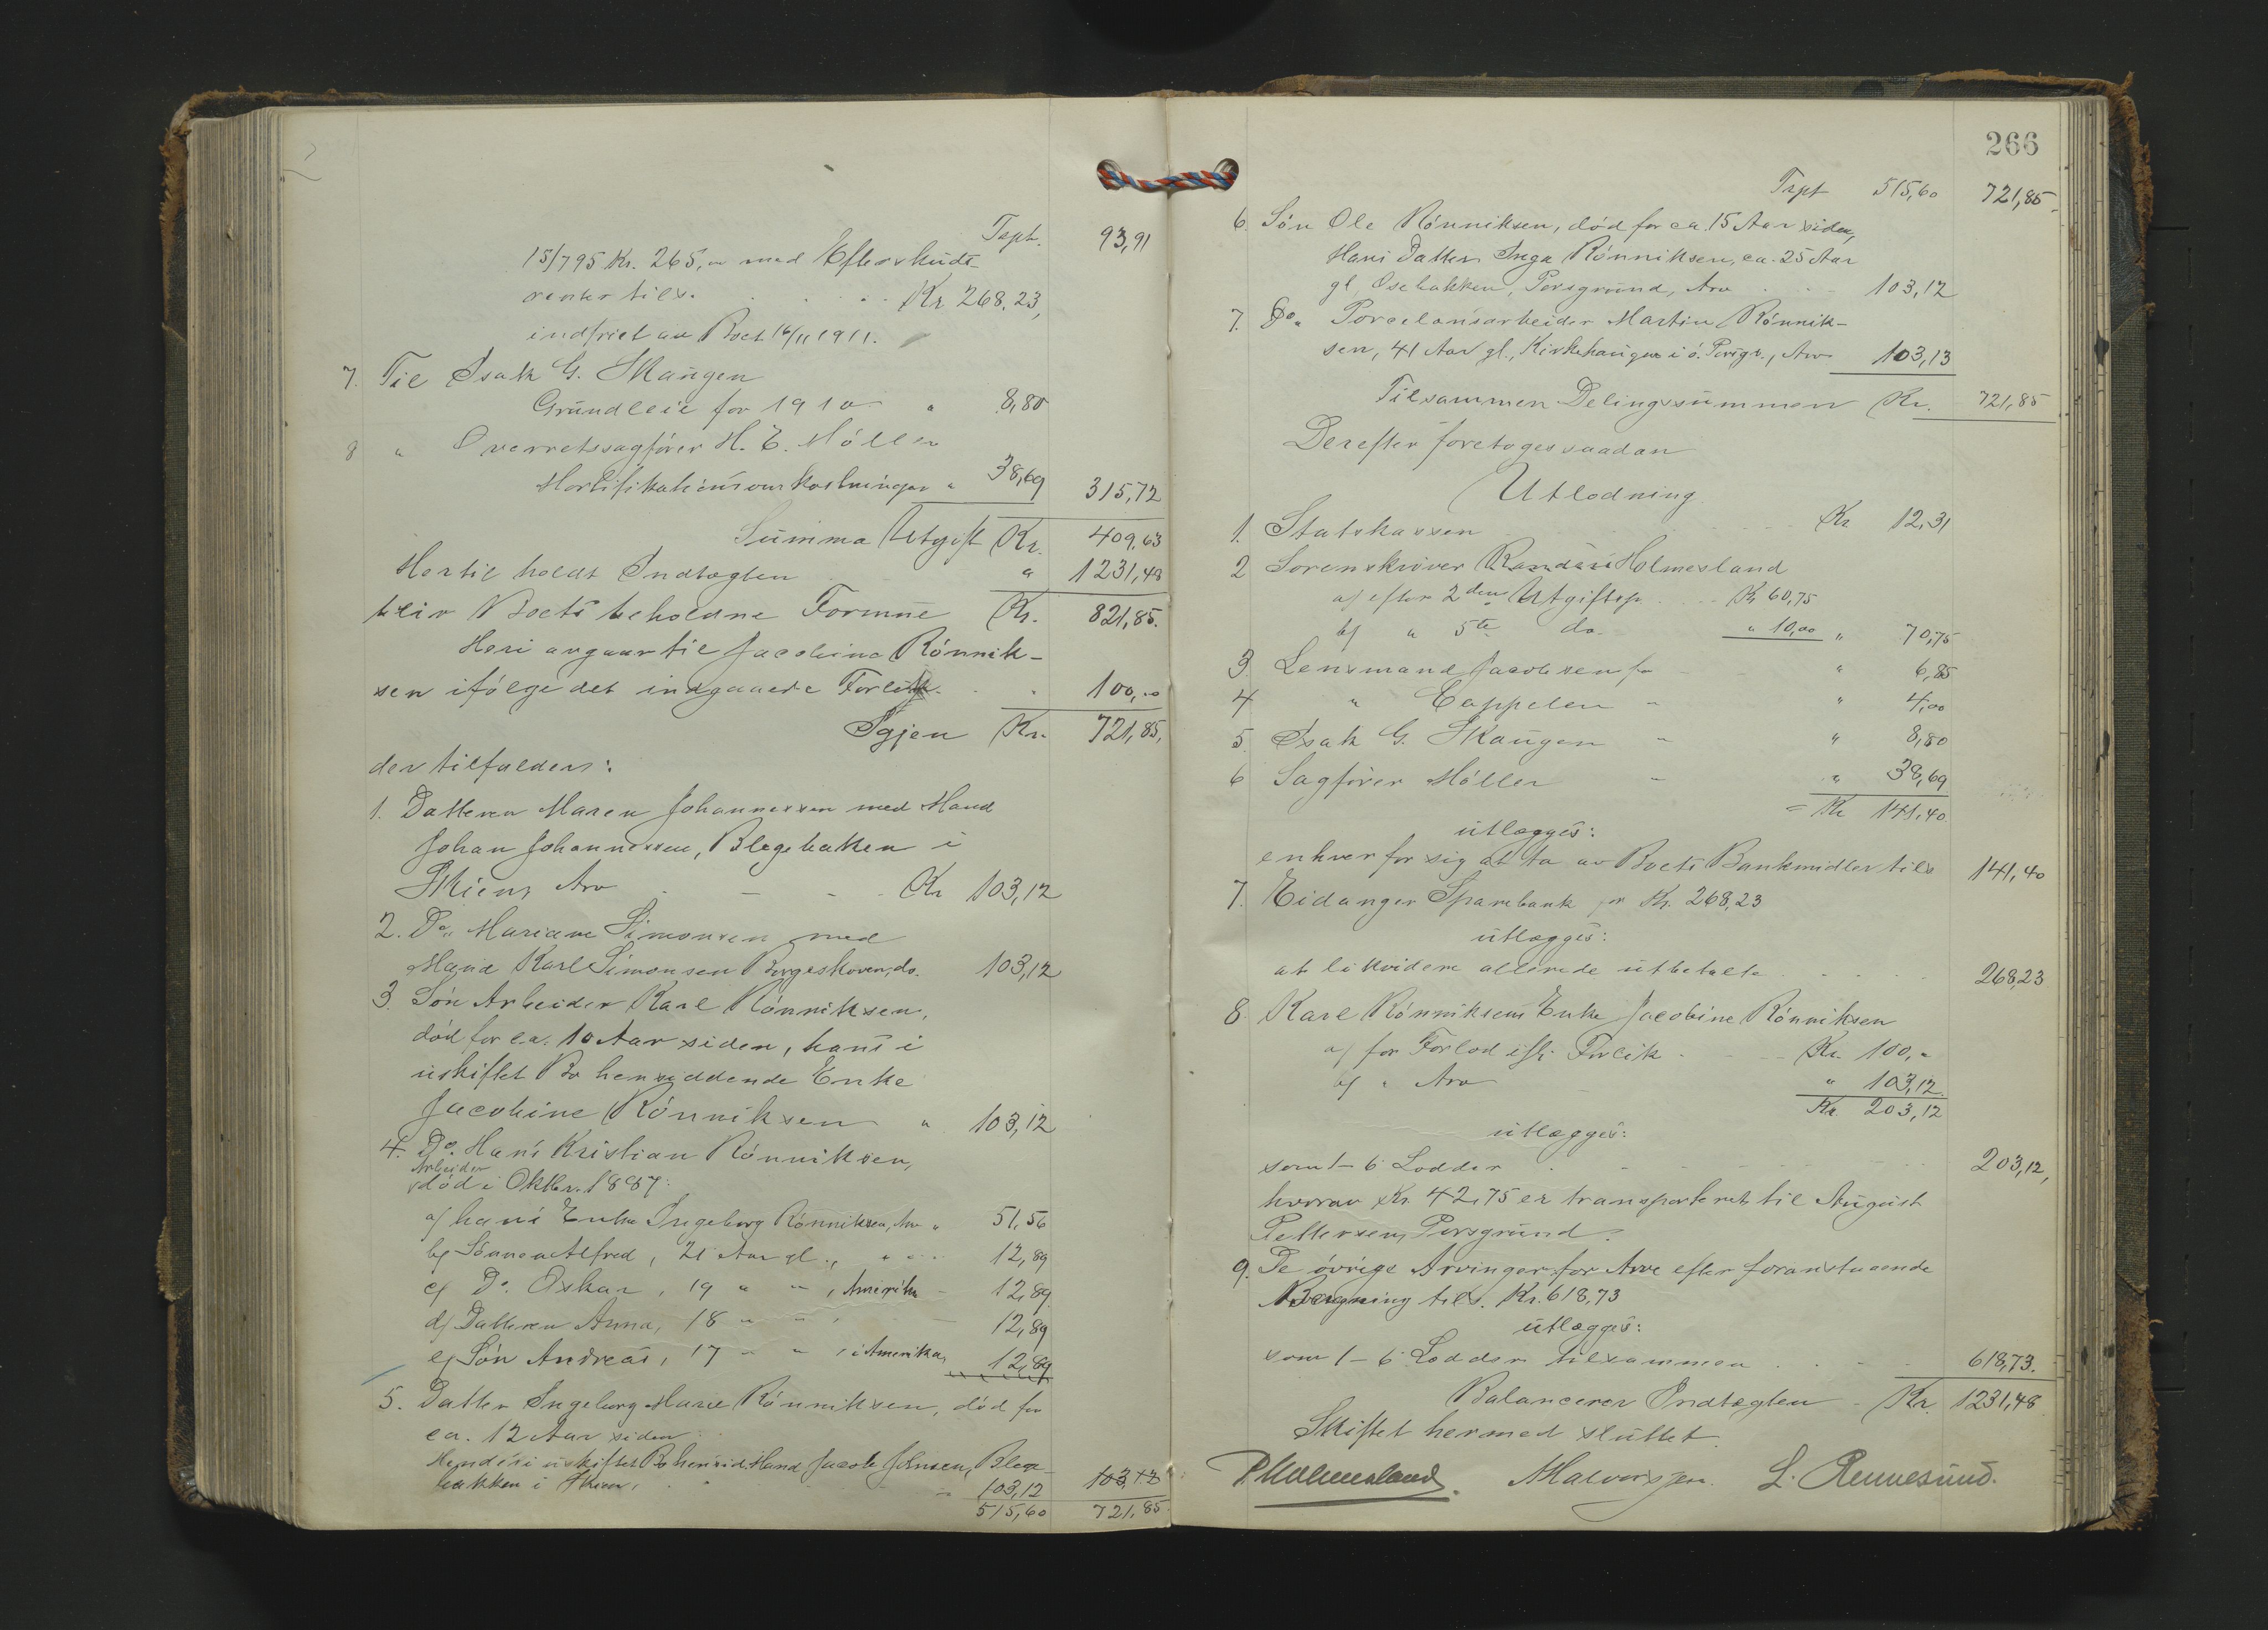 Tspt. 93,91
15/7 95 Kr. 265,00 med Efterskuds-
renter tils. Kr. 268,23,
indfriet av Boet 16/11 1911.
7. Til Isak G. Skaugen
Grundleie for 1910 " 8,80
8 " Overretssagfører H. E. Møller
Mortifikationsomkostninger " 38,69 315,72
Summa Utgift Kr. 409,63
Hertil holdt Indtægten " 1231,48
blir Boets beholdne Formue Kr. 821,85.
Heri avgaar til Jacobine Rønnik-
sen ifølge det indgaaede Forlik " 100,00
Igjen Kr. 721,85,
der tilfalder:
1. Datteren Maren Johannessen med Mand
Johan Johannessen, Blegebakken i
Skien, Arv Kr 103,12
2. Do. Mariane Simonsen med
Mand Karl Simonsen Borgeskoven, do. 103,12
3. Søn Arbeider Karl Rønniksen,
død for ca. 10 Aar siden, hans i
uskiftet Bo hensiddende Enke
Jacobine Rønniksen " 103,12
4. Do. Hans Kristian Rønniksen,
Arbeider
død i Oktbr. 1887:
a/ hans Enke Ingeborg Rønniksen, Arv " 51,56
b/ Sønnen Alfred, 21 Aar gl., " " 12,89
c/ Do. Oskar, 19 " " , Amerika 12,89
d/ Datteren Anna, 18 " " , 12,89
e/ Søn Andreas, 17 " " , i Amerika, 12,89
5. Datter Ingeborg Marie Rønniksen, død for
ca. 12 Aar siden
Hendes i uskiftet Bo hensid. Mand Jacob Johnsen, Blege- 103,12
bakken i Skien, " 103,12
515,60 721,85
266
Tspt 515,60 721,85
6. Søn Ole Rønniksen, død for ca. 15 Aar siden,
Hans Datter Inga Rønniksen, ca. 25 Aar
gl, Osebakken, Porsgrund, Arv 103,12
7. Do. Porcelænsarbeider Martin Rønnik-
sen, 41 Aar gl., Kirkehaugen i ø. Porsgr., Arv 103,13
Tilsammen Delingssummen Kr. 721,85
Derefter foretoges saadan
Utlodning
1. Statskassen Kr 12,31
2 Sorenskriver Holmesland
a/ efter 2den Utgiftsp. Kr 60,75
b/ " 5te do. " 10,00 " 70,75
3. Lensmand Jacobsen for " 6,85
4 " Cappelen " " 4,00
5. Isak G. Skaugen " " 8,80
6 Sagfører Møller " " 38,69
= Kr 141,40
utlægges:
enhver for sig at ta av Boets Bankmidler tils 141,40
7. Eidanger Sparebank for Kr. 268,23
utlægges:
at likvidere allerede utbetalte 268,23
8 Karl Rønniksens Enke Jacobine Rønniksen
a/ for Forlod ifl. Forlik Kr. 100,"
b/ " Arv " 103,12.
Kr. 203,12
utlægges:
som 1-6 Lodder 203,12,
hvorav Kr. 42,75 er transporteret til August
Pettersen, Porsgrund.
9. De øvrige Arvinger for Arv efter foranstaaende
Beregning tils. Kr. 618,73
utlægges:
som 1-6 Lodder tilsammen 618,73.
Balancerer Indtægten Kr. 1231,48
Skiftet hermed sluttet.
P. Holmesland. Halvorsen. L. Rennesund.